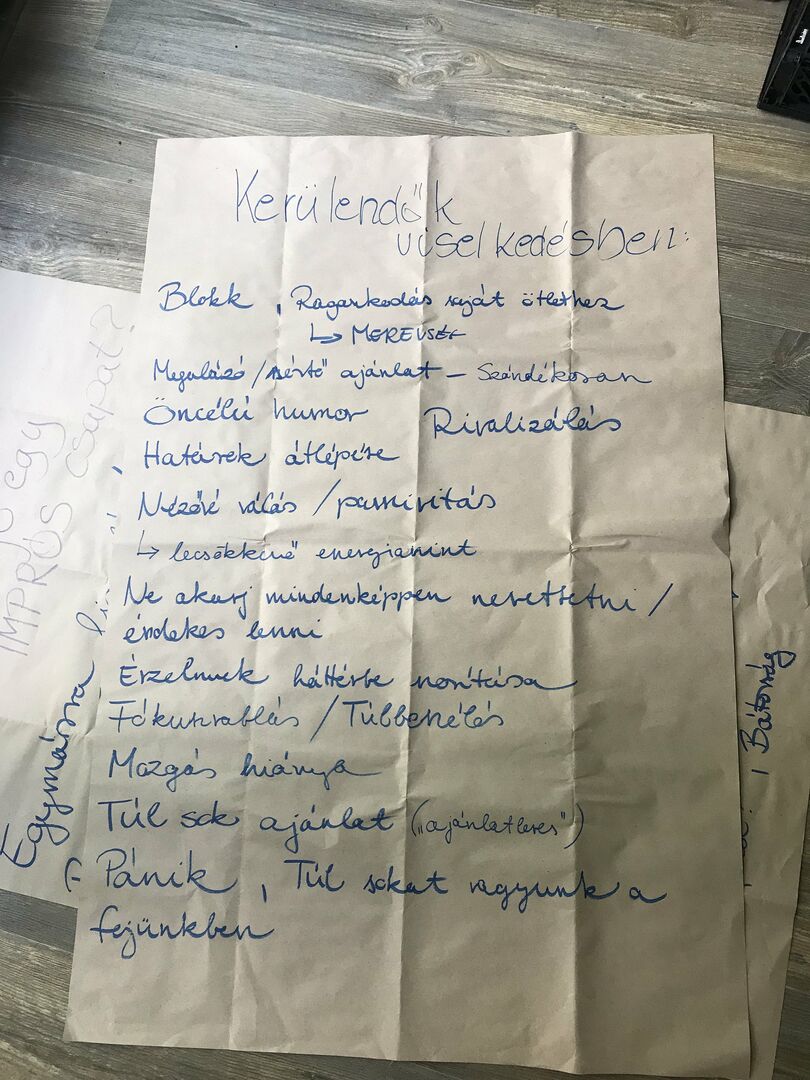 Kerülendők
viselkedésben:
Blokk, Ragaszkodás saját ötlethez
↳ MEREVSÉG
Megalázó/sértő ajánlat – Szándékosan
Öncélú humor Rivalizálás
Határok átlépése
Nézővé válás / passzivitás
↳ lecsökkenő energiaszint
Ne akarj mindenképpen nevettetni /
érdekes lenni
Érzelmek háttérbe szorítása
Fókuszrablás / Túlbeszélés
Mozgás hiánya
Túl sok ajánlat („ajánlatleves")
Pánik, Túl sokat vagyunk a
fejünkben
egy
IMPRÓS csapat?
Egymásra
Bátorság